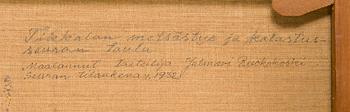 Tikkalan metsästys ja kalastus-
seuran taulu
Maalannut taiteilija Jalmari Ruokokoski
Seuran tilauksena v. 1932